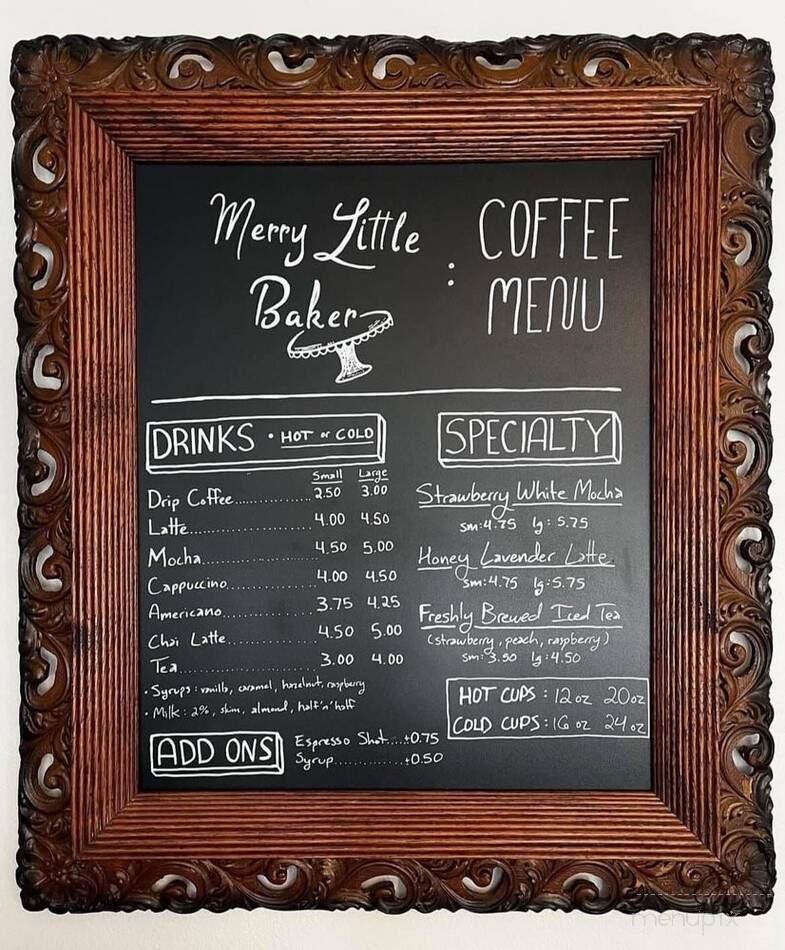 Merry Little
Baker
: COFFEE
MENU
DRINKS • HOT or COLD
Small Large
Drip Coffee.............. 2.50 3.00
Latte........................ 4.00 4.50
Mocha..................... 4.50 5.00
Cappuccino............. 4.00 4.50
Americano............... 3.75 4.25
Chai Latte............... 4.50 5.00
Tea......................... 3.00 4.00
• Syrups: vanilla, caramel, hazelnut, raspberry
• Milk: 2%, skim, almond, half'n'half
ADD ONS
Espresso Shot.....+0.75
Syrup.............+0.50
SPECIALTY
Strawberry White Mocha
sm: 4.75 lg: 5.75
Honey Lavender Latte
sm: 4.75 lg: 5.75
Freshly Brewed Iced Tea
(strawberry, peach, raspberry)
sm: 3.50 lg: 4.50
HOT CUPS: 12oz 20oz
COLD CUPS: 16oz 24oz
menupix